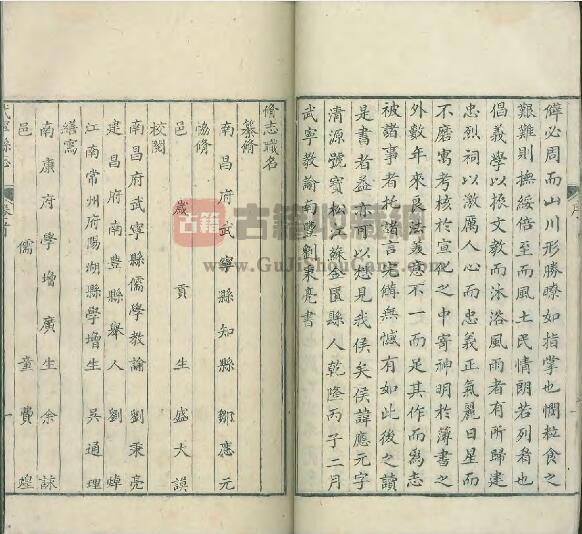 僻必周而山川形勝瞭如指掌也憫粒食之
艱難則撫綏倍至而風土民情朗若列眉也
倡義學以振文教而沐浴風雨者有所歸建
忠烈祠以激厲人心而忠義正氣麗日星而
不磨寓考核於宣化之中寄神明於簿書之
外數年來良法美意不一而足其作而爲志
被諸事者托諸言完備無憾有如此後之讀
是書者益亦可以想見我侯矣侯諱應元字
清源號寶松江蘇金匱縣人乾隆丙子二月
武寧教諭南豐劉秉亮書
序
脩志職名
纂脩
南昌府武寧縣知縣鄒應元
協脩
邑歲貢生盛大謨
校閱
南昌府武寧縣儒學教諭劉秉亮
建昌府南豐縣舉人劉焯
江南常州府陽湖縣學增生吳通理
繕寫
南康府學增廣生余誄
邑儒童費煌
武寧縣志
卷首
一
古籍收藏網
www.GuJiShouCang.com